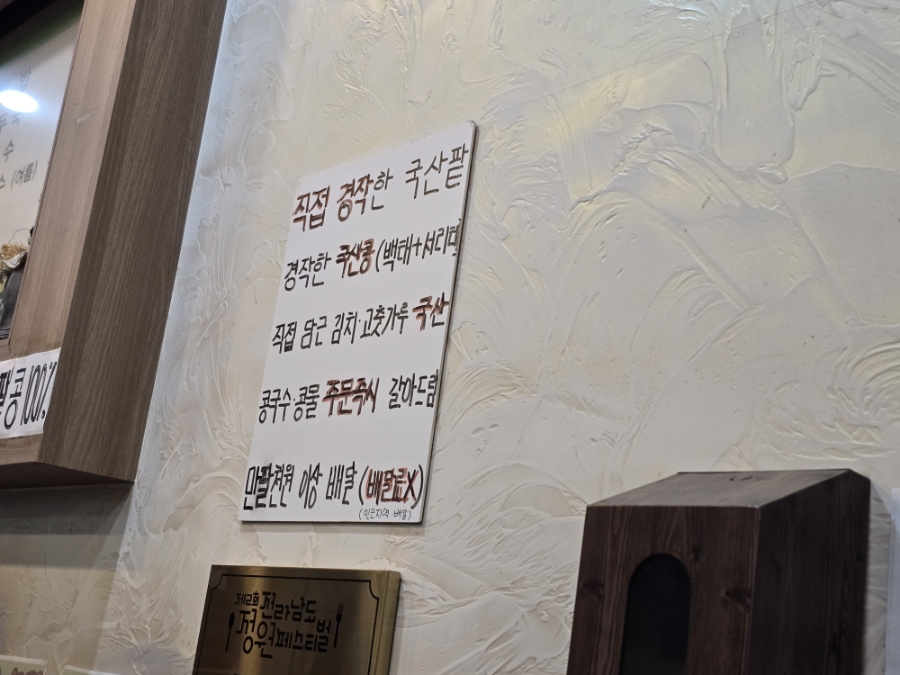 직접 경작한 국산팥
경작한 국산콩(백태+서리태
직접 담근 김치·고춧가루 국산
콩국수·콩물 주문즉시 갈아드림
만팔천원 이상 배달 (배달료X)
(인근지역 배달)
전라남도
정원페스티벌
수
스 (여름)
콩100%